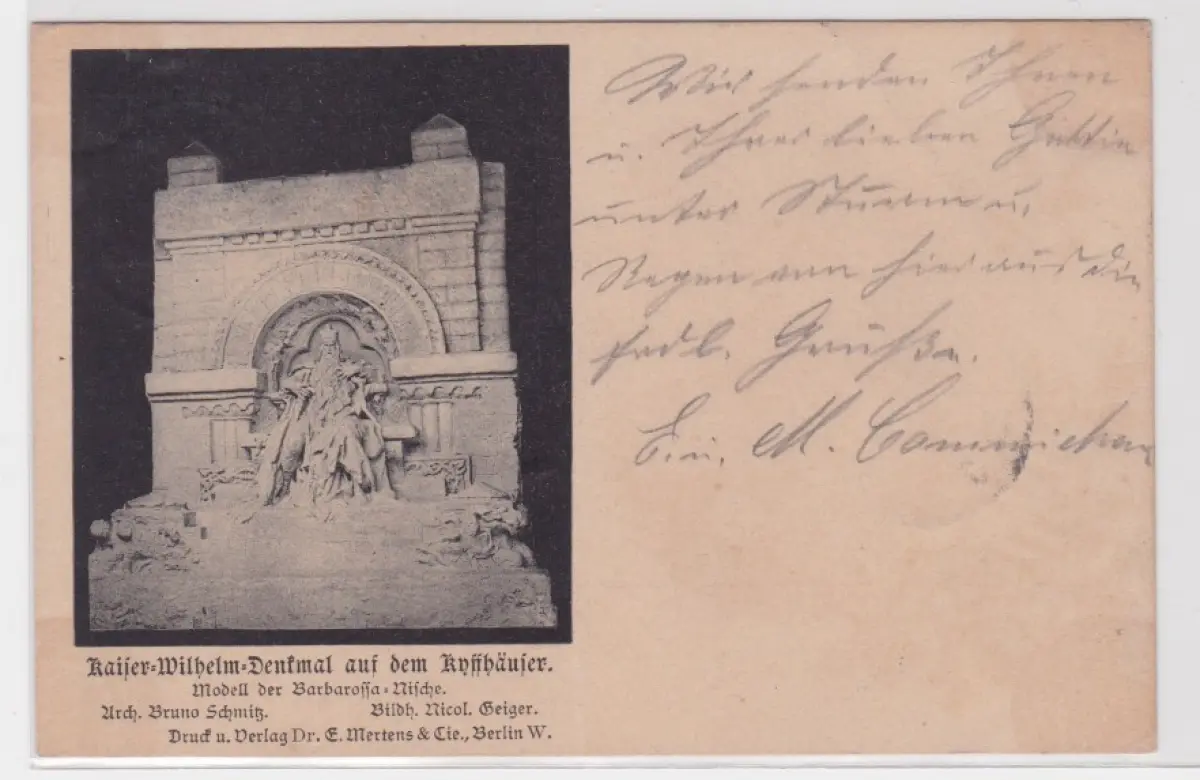 Kaiser-Wilhelm-Denkmal auf dem Kyffhäuser.
Modell der Barbarossa-Nische.
Arch. Bruno Schmitz. Bildh. Nicol. Geiger.
Druck u. Verlag Dr. E. Mertens & Cie., Berlin W.
Wir senden Ihnen
u. Ihrer lieben Gattin
unter Sturm u.
Regen von hier aus die
frdl. Grüße.
M.